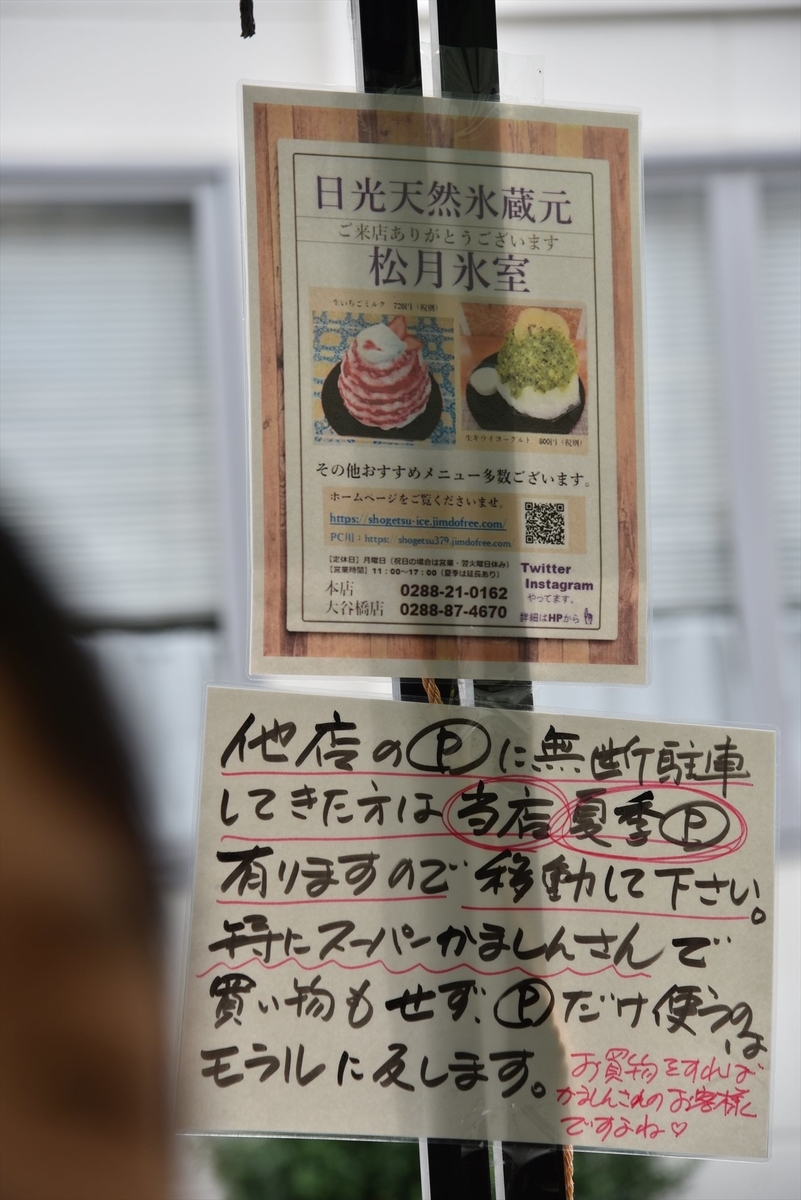 日光天然氷蔵元
ご来店ありがとうございます
松月氷室
生いちごミルク 720円（税別）
生キウイヨーグルト 800円（税別）
その他おすすめメニュー多数ございます。
ホームページをご覧くださいませ。
https://shogetsu-ice.jimdofree.com/
PC用：https://shogetsu379.jimdofree.com
【定休日】月曜日（祝日の場合は営業・翌火曜日休み）
【営業時間】11：00～17：00（夏季は延長あり）
本店 0288-21-0162
大谷橋店 0288-87-4670
Twitter
Instagram
やってます。
詳細はHPから
他店のⓅに無断駐車
してきた方は当店夏季Ⓟ
有りますので移動して下さい。
特にスーパーかましんさんで
買い物もせず、Ⓟだけ使うのは
モラルに反します。
お買物をすれば
かましんさんのお客様
ですよね♡